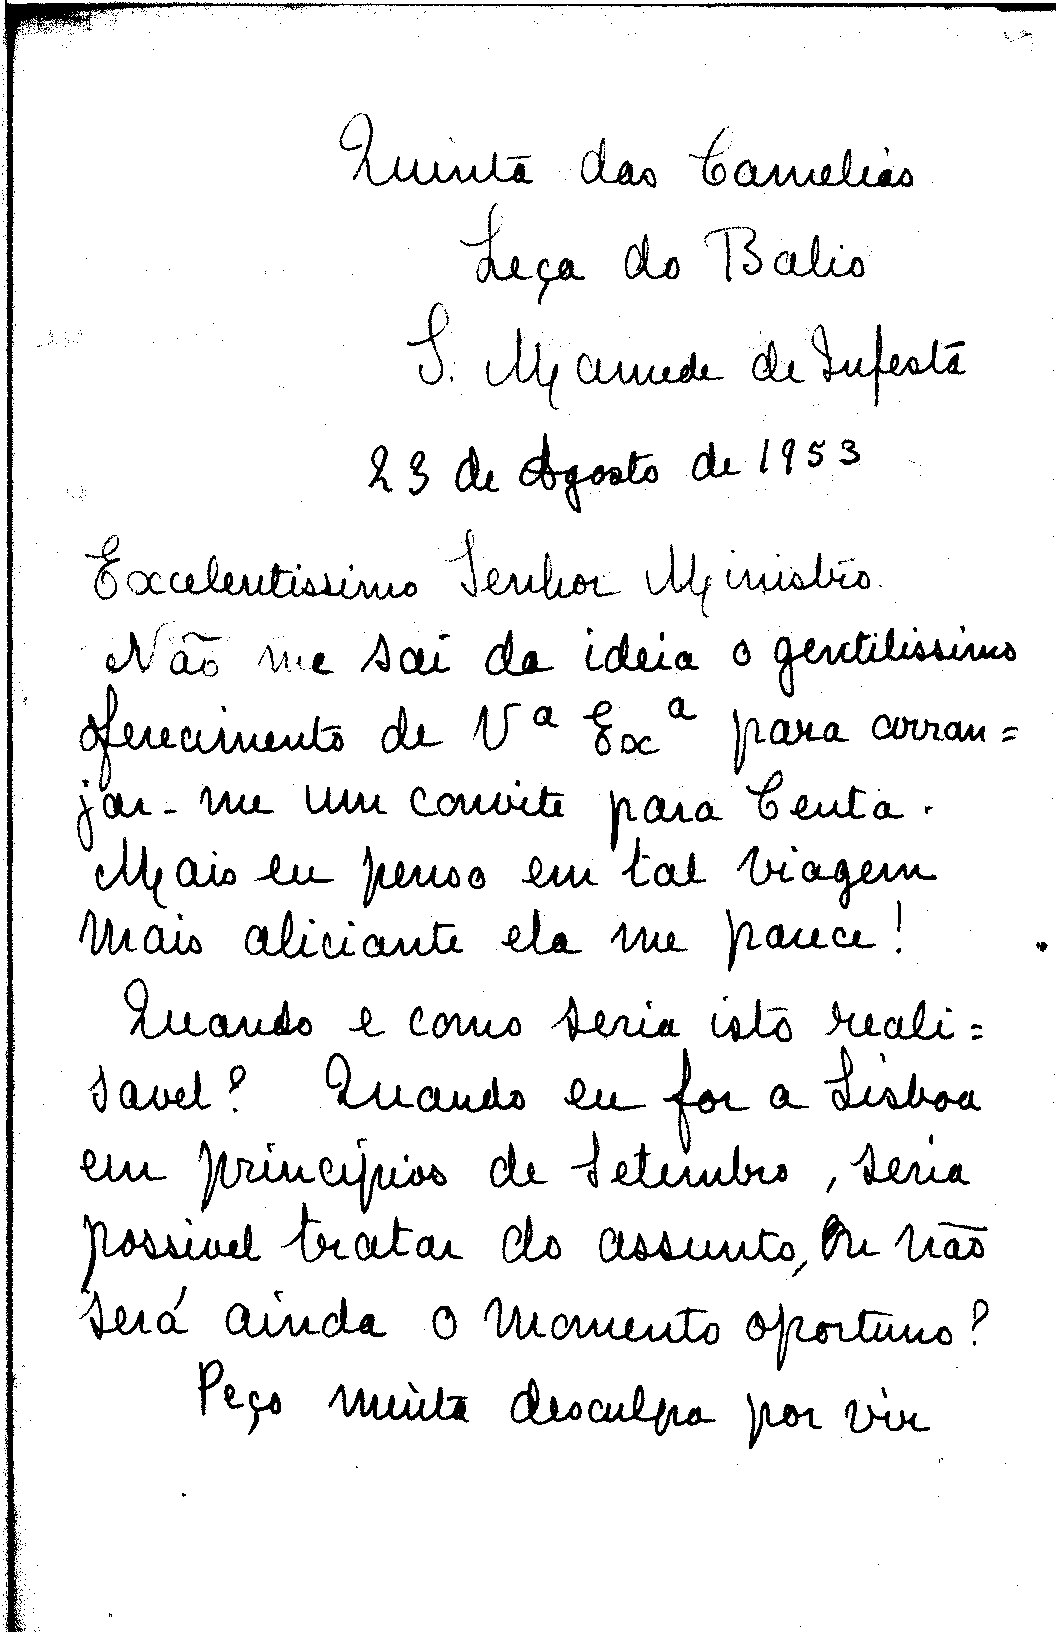 Quinta das Camelias
Leça do Balio
S. Mamede de Infesta
23 de Agosto de 1953
Excelentissimo Senhor Ministro.
Não me sai da ideia o gentilissimo
oferecimento de Vª Exª para arran=
jar-me um convite para Ceuta.
Mais eu penso em tal viagem
mais aliciante ela me parece!
Quando e como seria isto reali=
savel? Quando eu for a Lisboa
em principios de Setembro, seria
possivel tratar do assunto, ou não
será ainda o momento oportuno?
Peço muita desculpa por vir